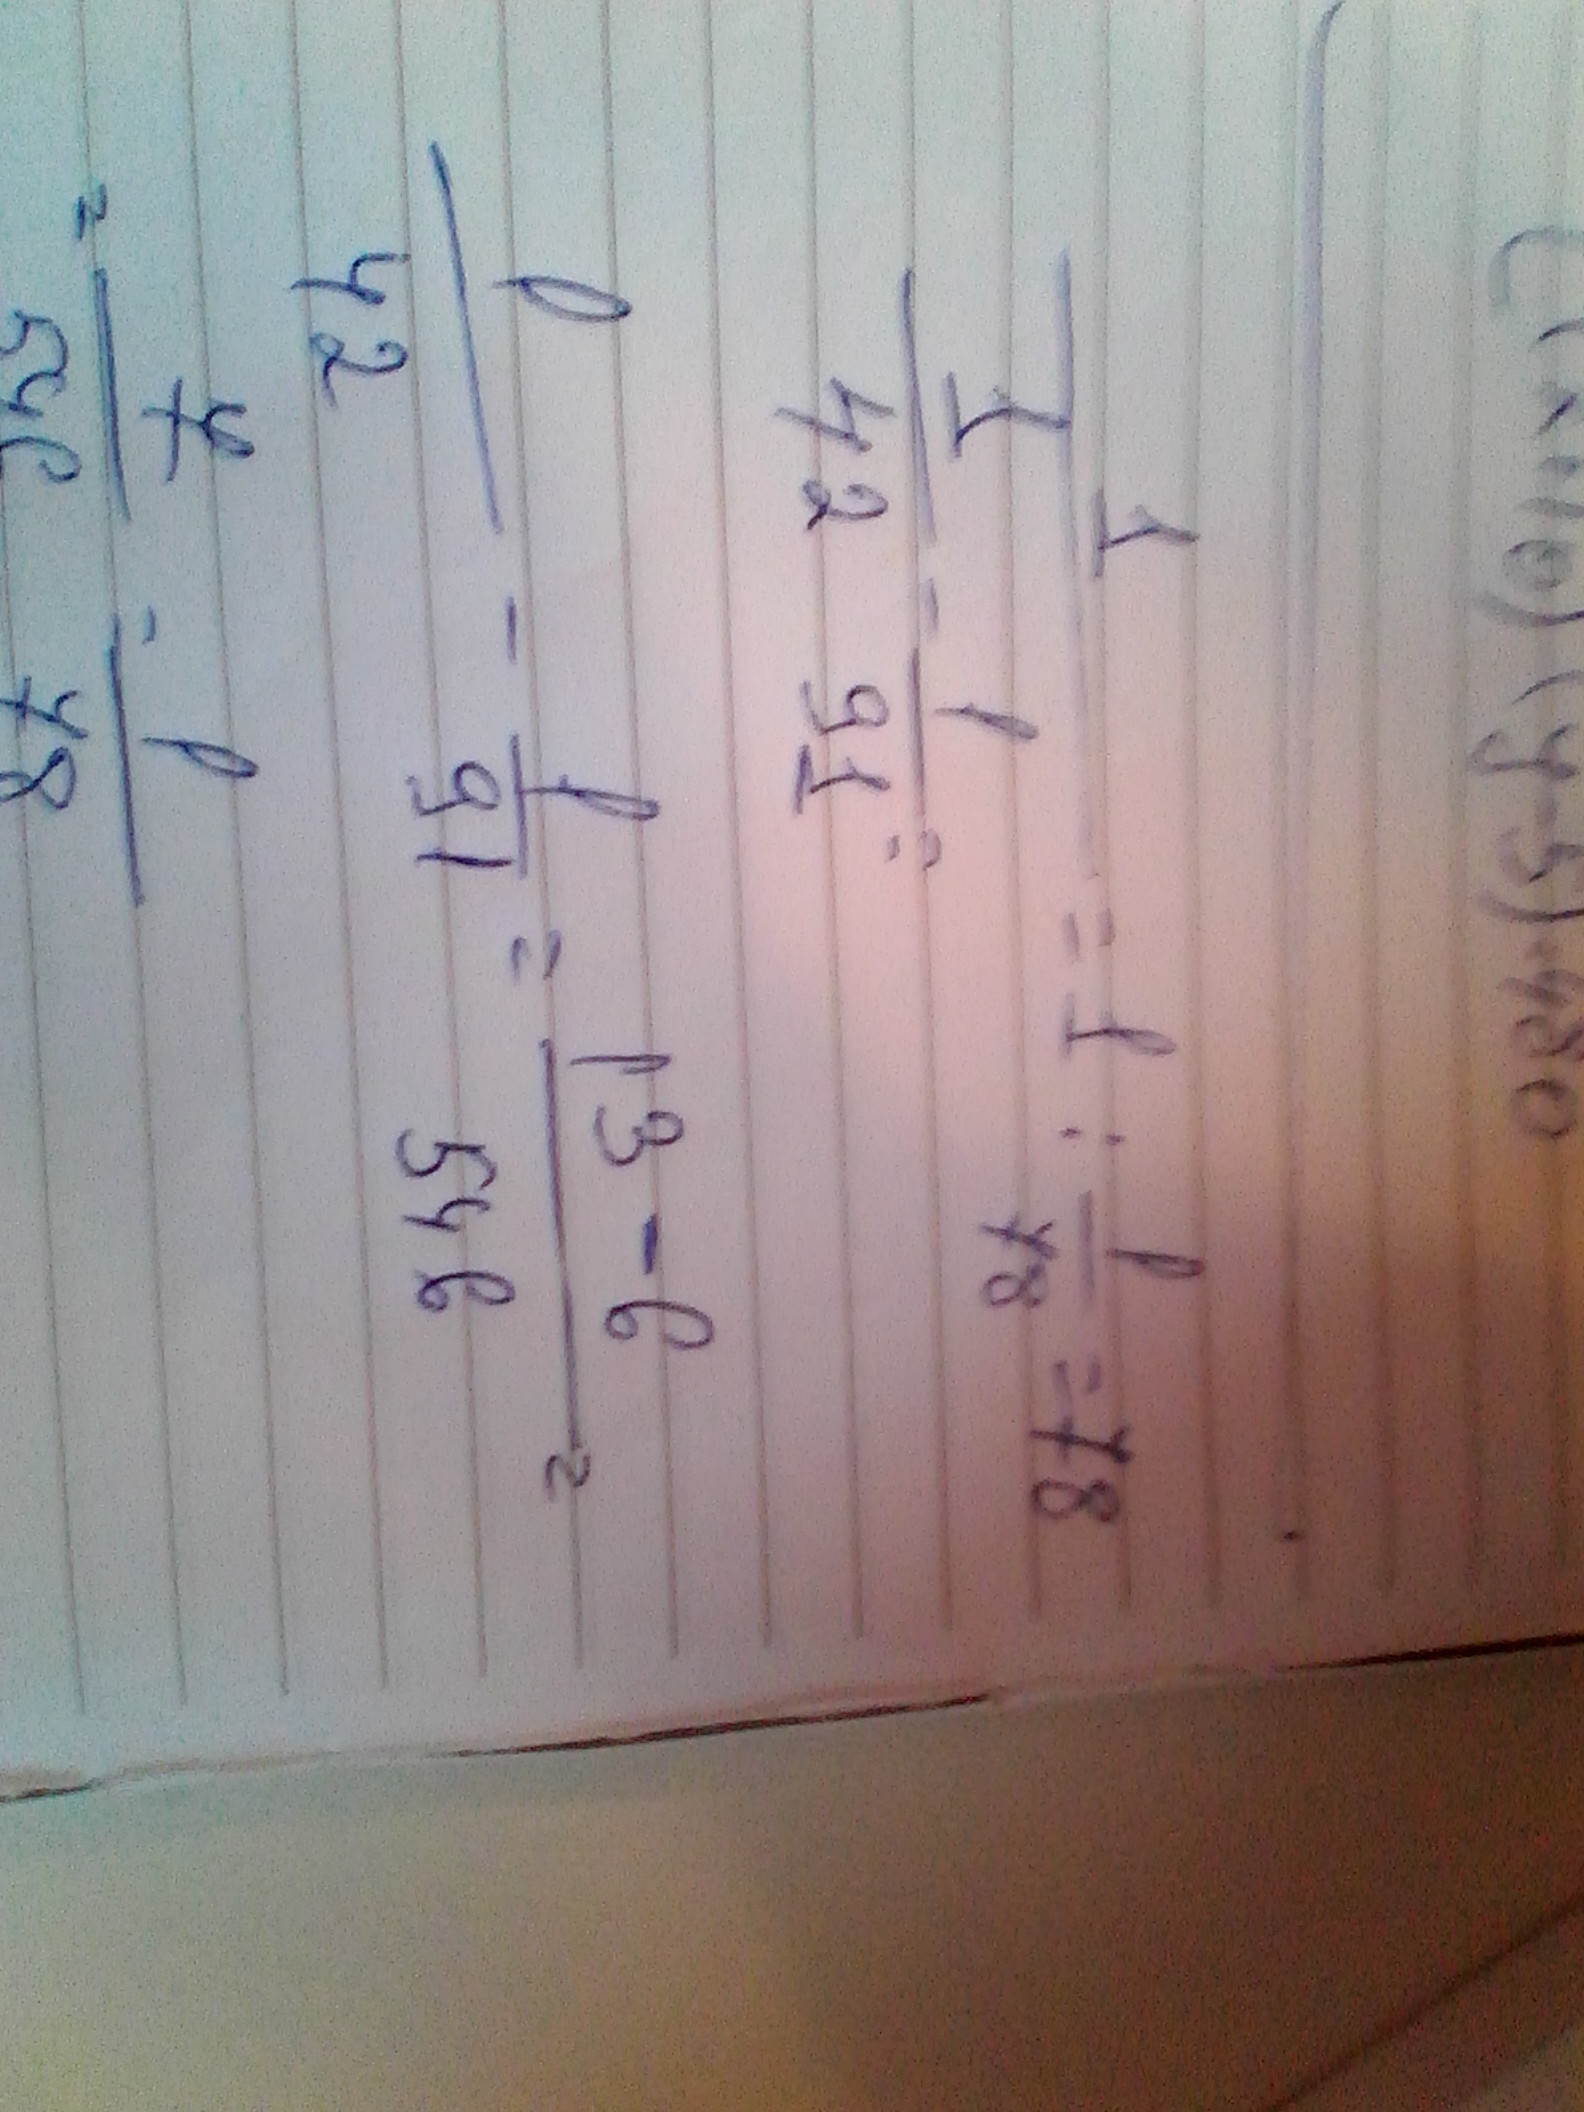 (x+10)(y-5)=480
1
1/42 - 1/91 = = 1 : 1/78 = 78
1/42 - 1/91 = 13-6/546 =
= 7/546 = 1/78